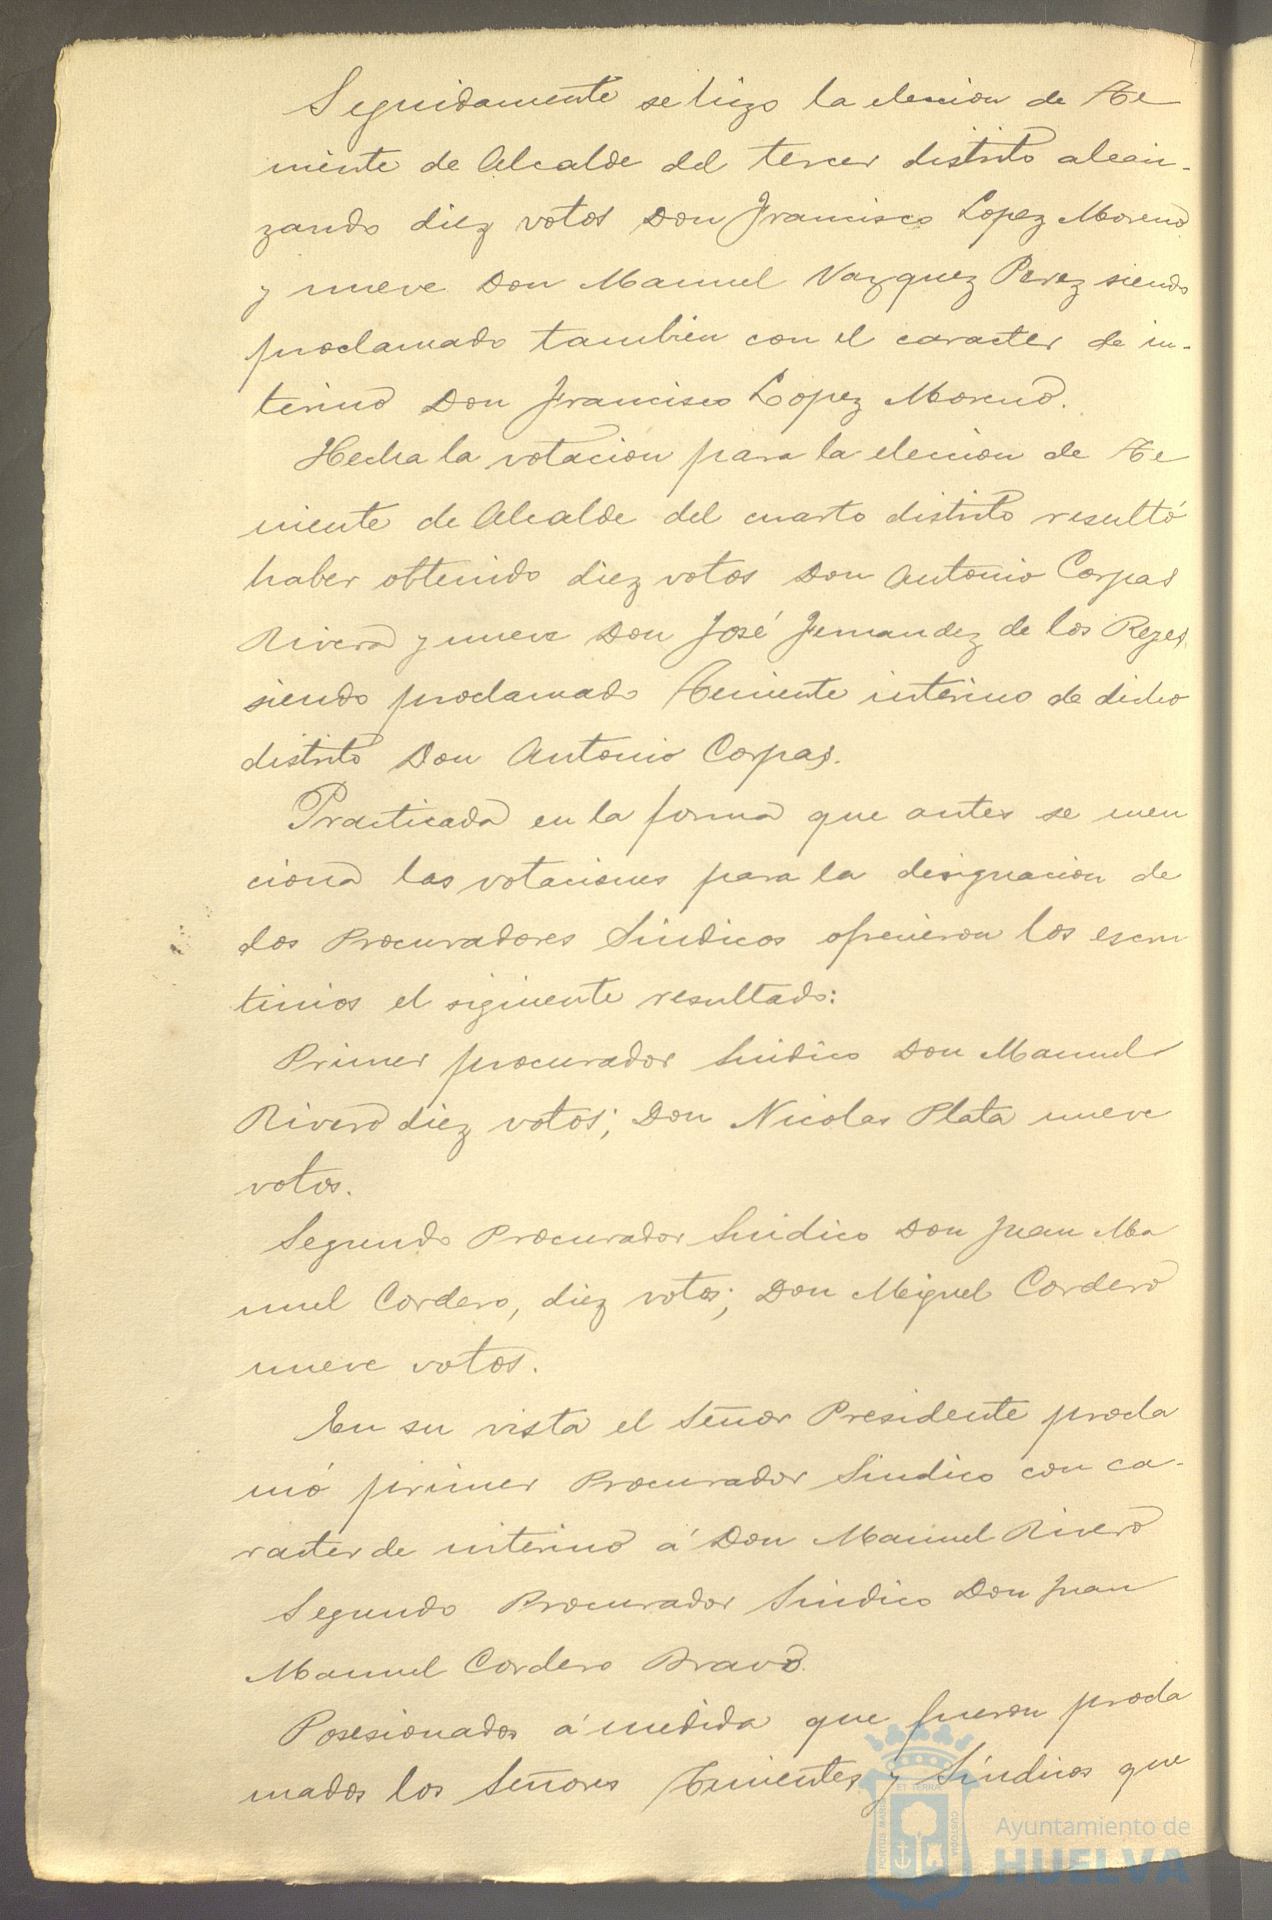 Seguidamente se hizo la eleccion de Te
niente de Alcalde del tercer distrito alcan-
zando diez votos Don Francisco Lopez Moreno
y nueve Don Manuel Vazquez Perez siendo
proclamado tambien con el caracter de in-
terino Don Francisco Lopez Moreno.
Hecha la votacion para la eleccion de Te
niente de Alcalde del cuarto distrito resultó
haber obtenido diez votos Don Antonio Corpas
Rivera y nueve Don José Fernandez de los Reyes
siendo proclamado Teniente interino de dicho
distrito Don Antonio Corpas.
Practicada en la forma que antes se men
ciona las votaciones para la designacion de
dos Procuradores Sindicos ofrecieron los escru
tinios el siguiente resultado:
Primer procurador Sindico Don Manuel
Rivero diez votos; Don Nicolas Plata nueve
votos.
Segundo Procurador Sindico Don Juan Ma
nuel Cordero, diez votos; Don Miguel Cordero
nueve votos.
En su vista el Señor Presidente procla
mó primer Procurador Sindico con ca-
racter de interino á Don Manuel Rivero
Segundo Procurador Sindico Don Juan
Manuel Cordero Bravo.
Posesionados á medida que fueron procla
mados los Señores Tenientes y Síndicos que
Ayuntamiento de
HUELVA